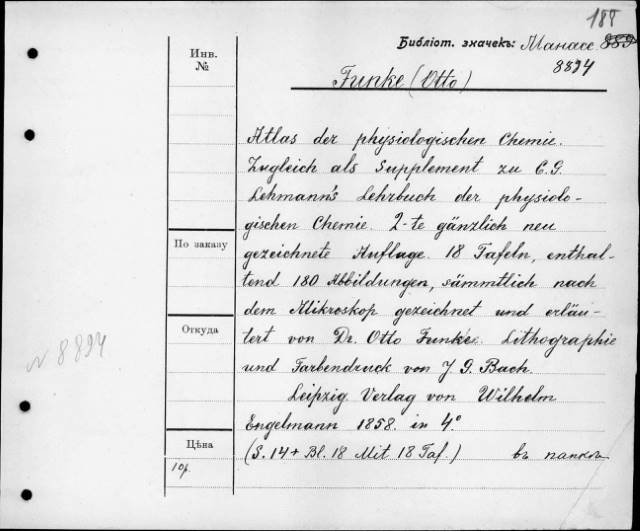 188
Библіот. значекъ: Манасе 889
8894
Funke (Otto)
Инв. №
Atlas der physiologischen Chemie.
Zugleich als Supplement zu C. G.
Lehmann's Lehrbuch der physiolo-
gischen Chemie. 2-te gänzlich neu
gezeichnete Auflage. 18 Tafeln, enthal-
tend 180 Abbildungen, sämmtlich nach
dem Mikroskop gezeichnet und erläu-
tert von Dr. Otto Funke. Lithographie
und Farbendruck von J. G. Bach.
Leipzig. Verlag von Wilhelm
Engelmann 1858. in 4°
(S. 14 + Bl. 18 Mit 18 Taf.) въ папкѣ
По заказу
Откуда
Цѣна
10р.
№ 8894